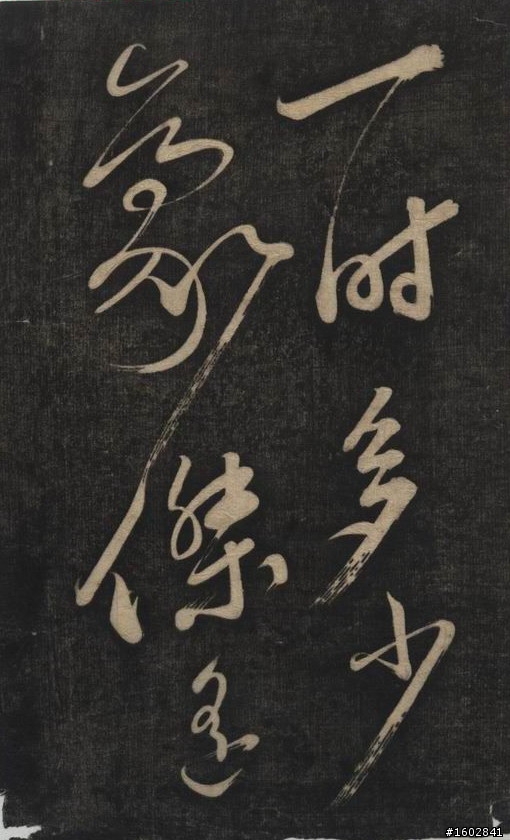 一时多少
豪傑遥
#1602841